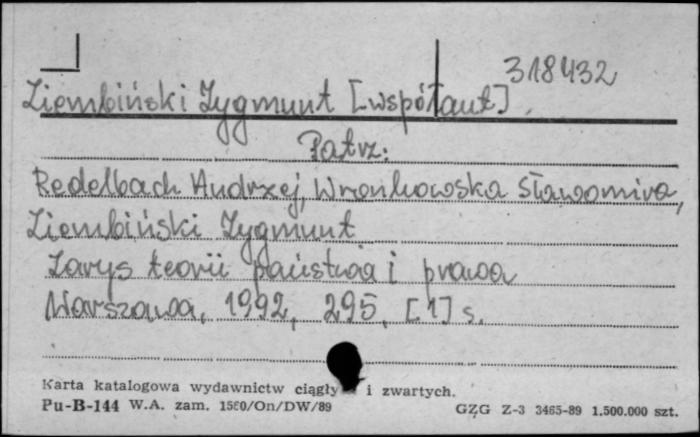 318432
Ziembiński Zygmunt [współaut].
Patrz:
Redelbach Andrzej, Wronkowska Sławomira,
Ziembiński Zygmunt
Zarys teorii państwa i prawa
Warszawa, 1992, 295, [1] s.
Karta katalogowa wydawnictw ciągły i zwartych.
Pu-B-144 W.A. zam. 1560/On/DW/89 GZG Z-3 3465-89 1.500.000 szt.